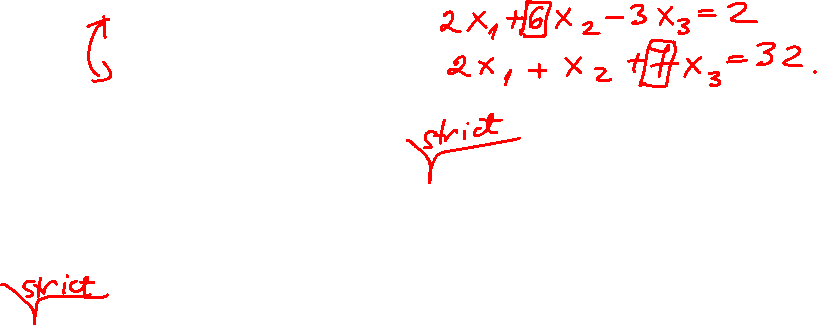 2x₁ + 6x₂ - 3x₃ = 2
2x₁ + x₂ + 7x₃ = 32.
strict
strict